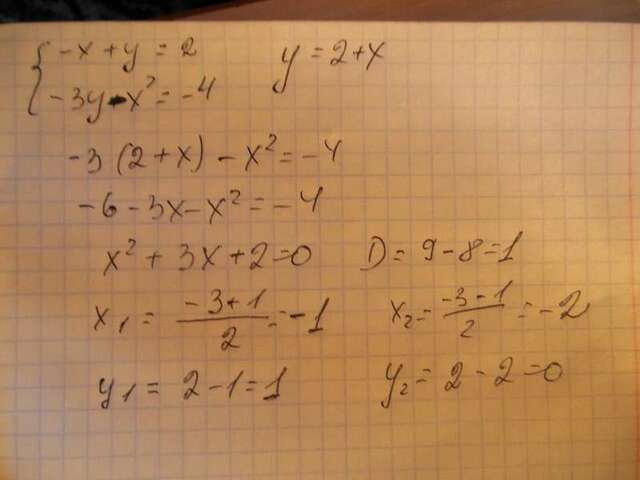 { -x + y = 2    y = 2 + x
-3y - x² = -4
-3 (2 + x) - x² = -4
-6 - 3x - x² = -4
x² + 3x + 2 = 0    D = 9 - 8 = 1
x₁ = (-3 + 1)/2 = -1    x₂ = (-3 - 1)/2 = -2
y₁ = 2 - 1 = 1    y₂ = 2 - 2 = 0